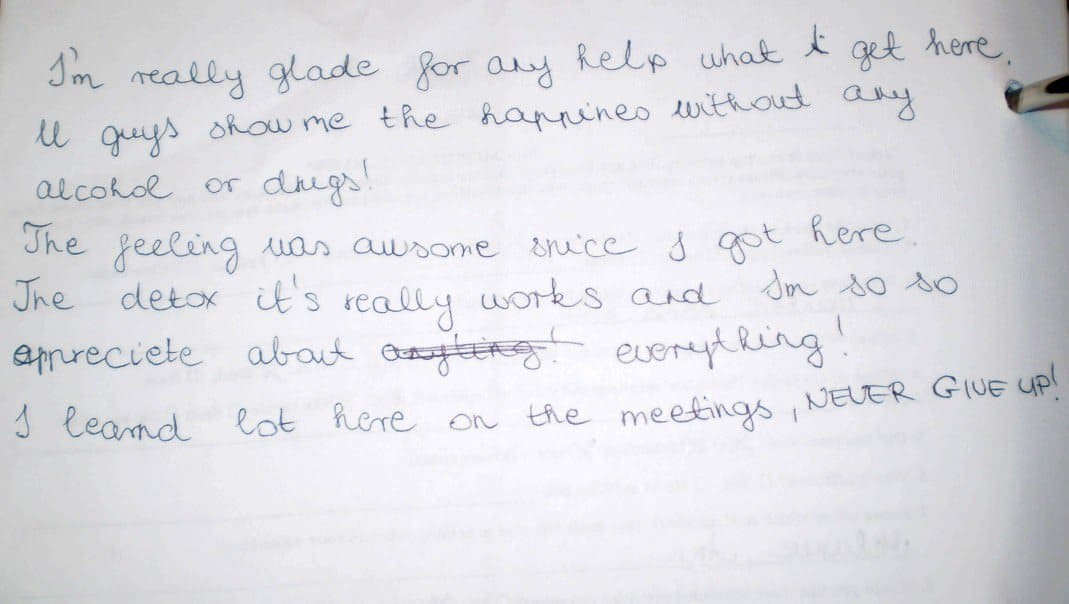 I'm really glade for any help what I get here.
U guys show me the happines without any
alcohol or drugs!
The feeling was awsome snice I got here.
The detox it's really works and Im so so
appreciete about anything! everything!
I learnd lot here on the meetings, NEVER GIVE UP!